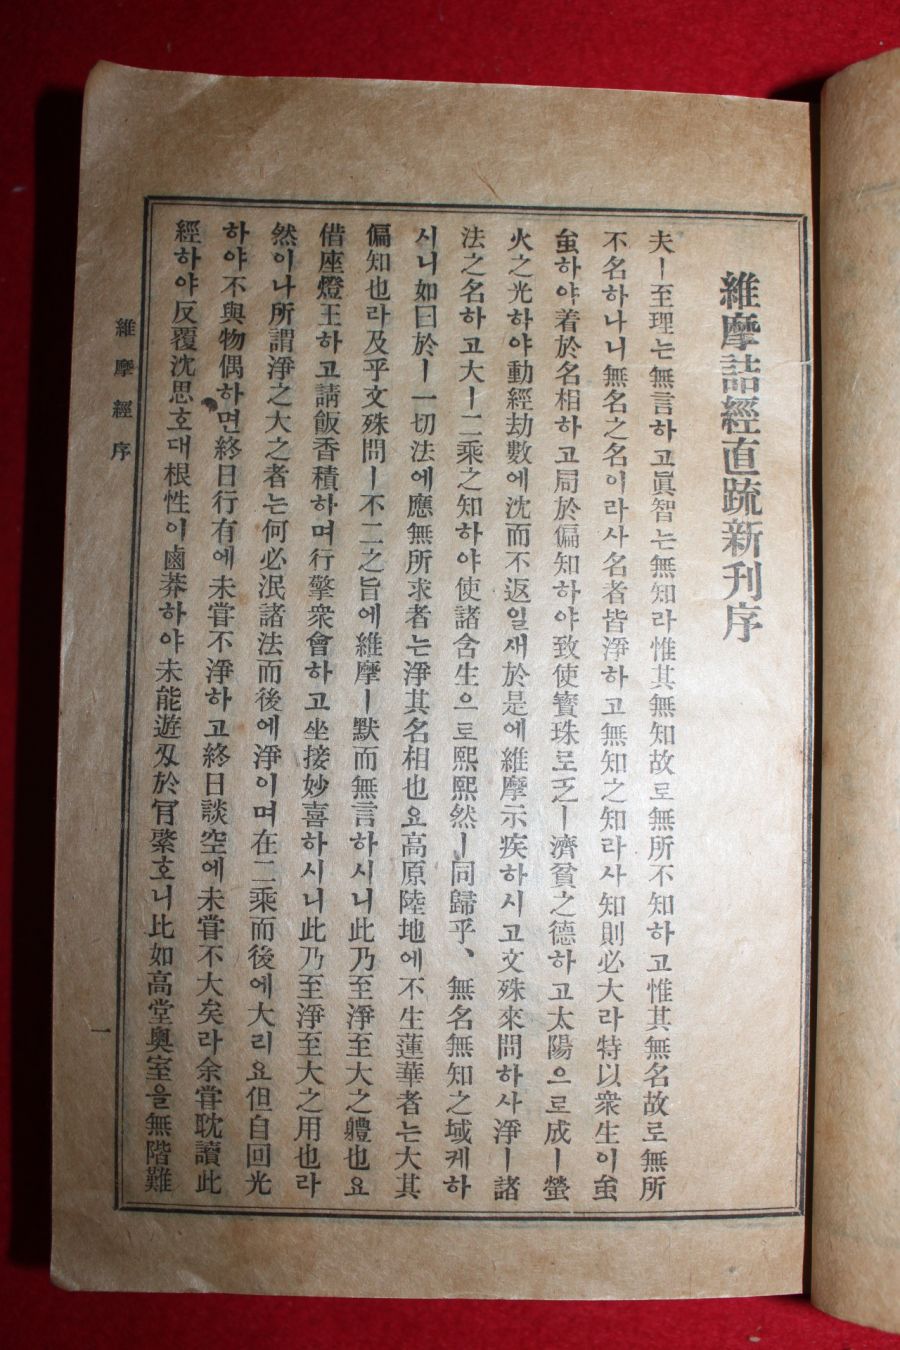 維摩詰經直疏新刊序
夫ㅣ至理는無言하고眞智는無知라惟其無知故로無所不知하고惟其無名故로無所
不名하나니無名之名이라사名者皆淨하고無知之知라사知則必大라特以衆生이䖝
䖝하야着於名相하고局於偏知하야致使寶珠로乏ㅣ濟貧之德하고太陽으로成ㅣ螢
火之光하야動經劫數에沈而不返일새於是에維摩示疾하시고文殊來問하사淨ㅣ諸
法之名하고大ㅣ二乘之知하야使諸含生으로熙熙然ㅣ同歸乎、無名無知之域케하
시니如曰於ㅣ一切法에應無所求者는淨其名相也요高原陸地에不生蓮華者는大其
偏知也라及乎文殊問ㅣ不二之旨에維摩ㅣ默而無言하시니此乃至淨至大之軆也요
借座燈王하고請飯香積하며行擎衆會하고坐接妙喜하시니此乃至淨至大之用也라
然이나所謂淨之大之者는何必泯諸法而後에淨이며在二乘而後에大리요但自回光
하야不與物偶하면終日行有에未甞不淨하고終日談空에未甞不大矣라余甞耽讀此
經하야反覆沈思호대根性이鹵莽하야未能遊刄於肎綮호니比如高堂奧室을無階難
維摩經序
一